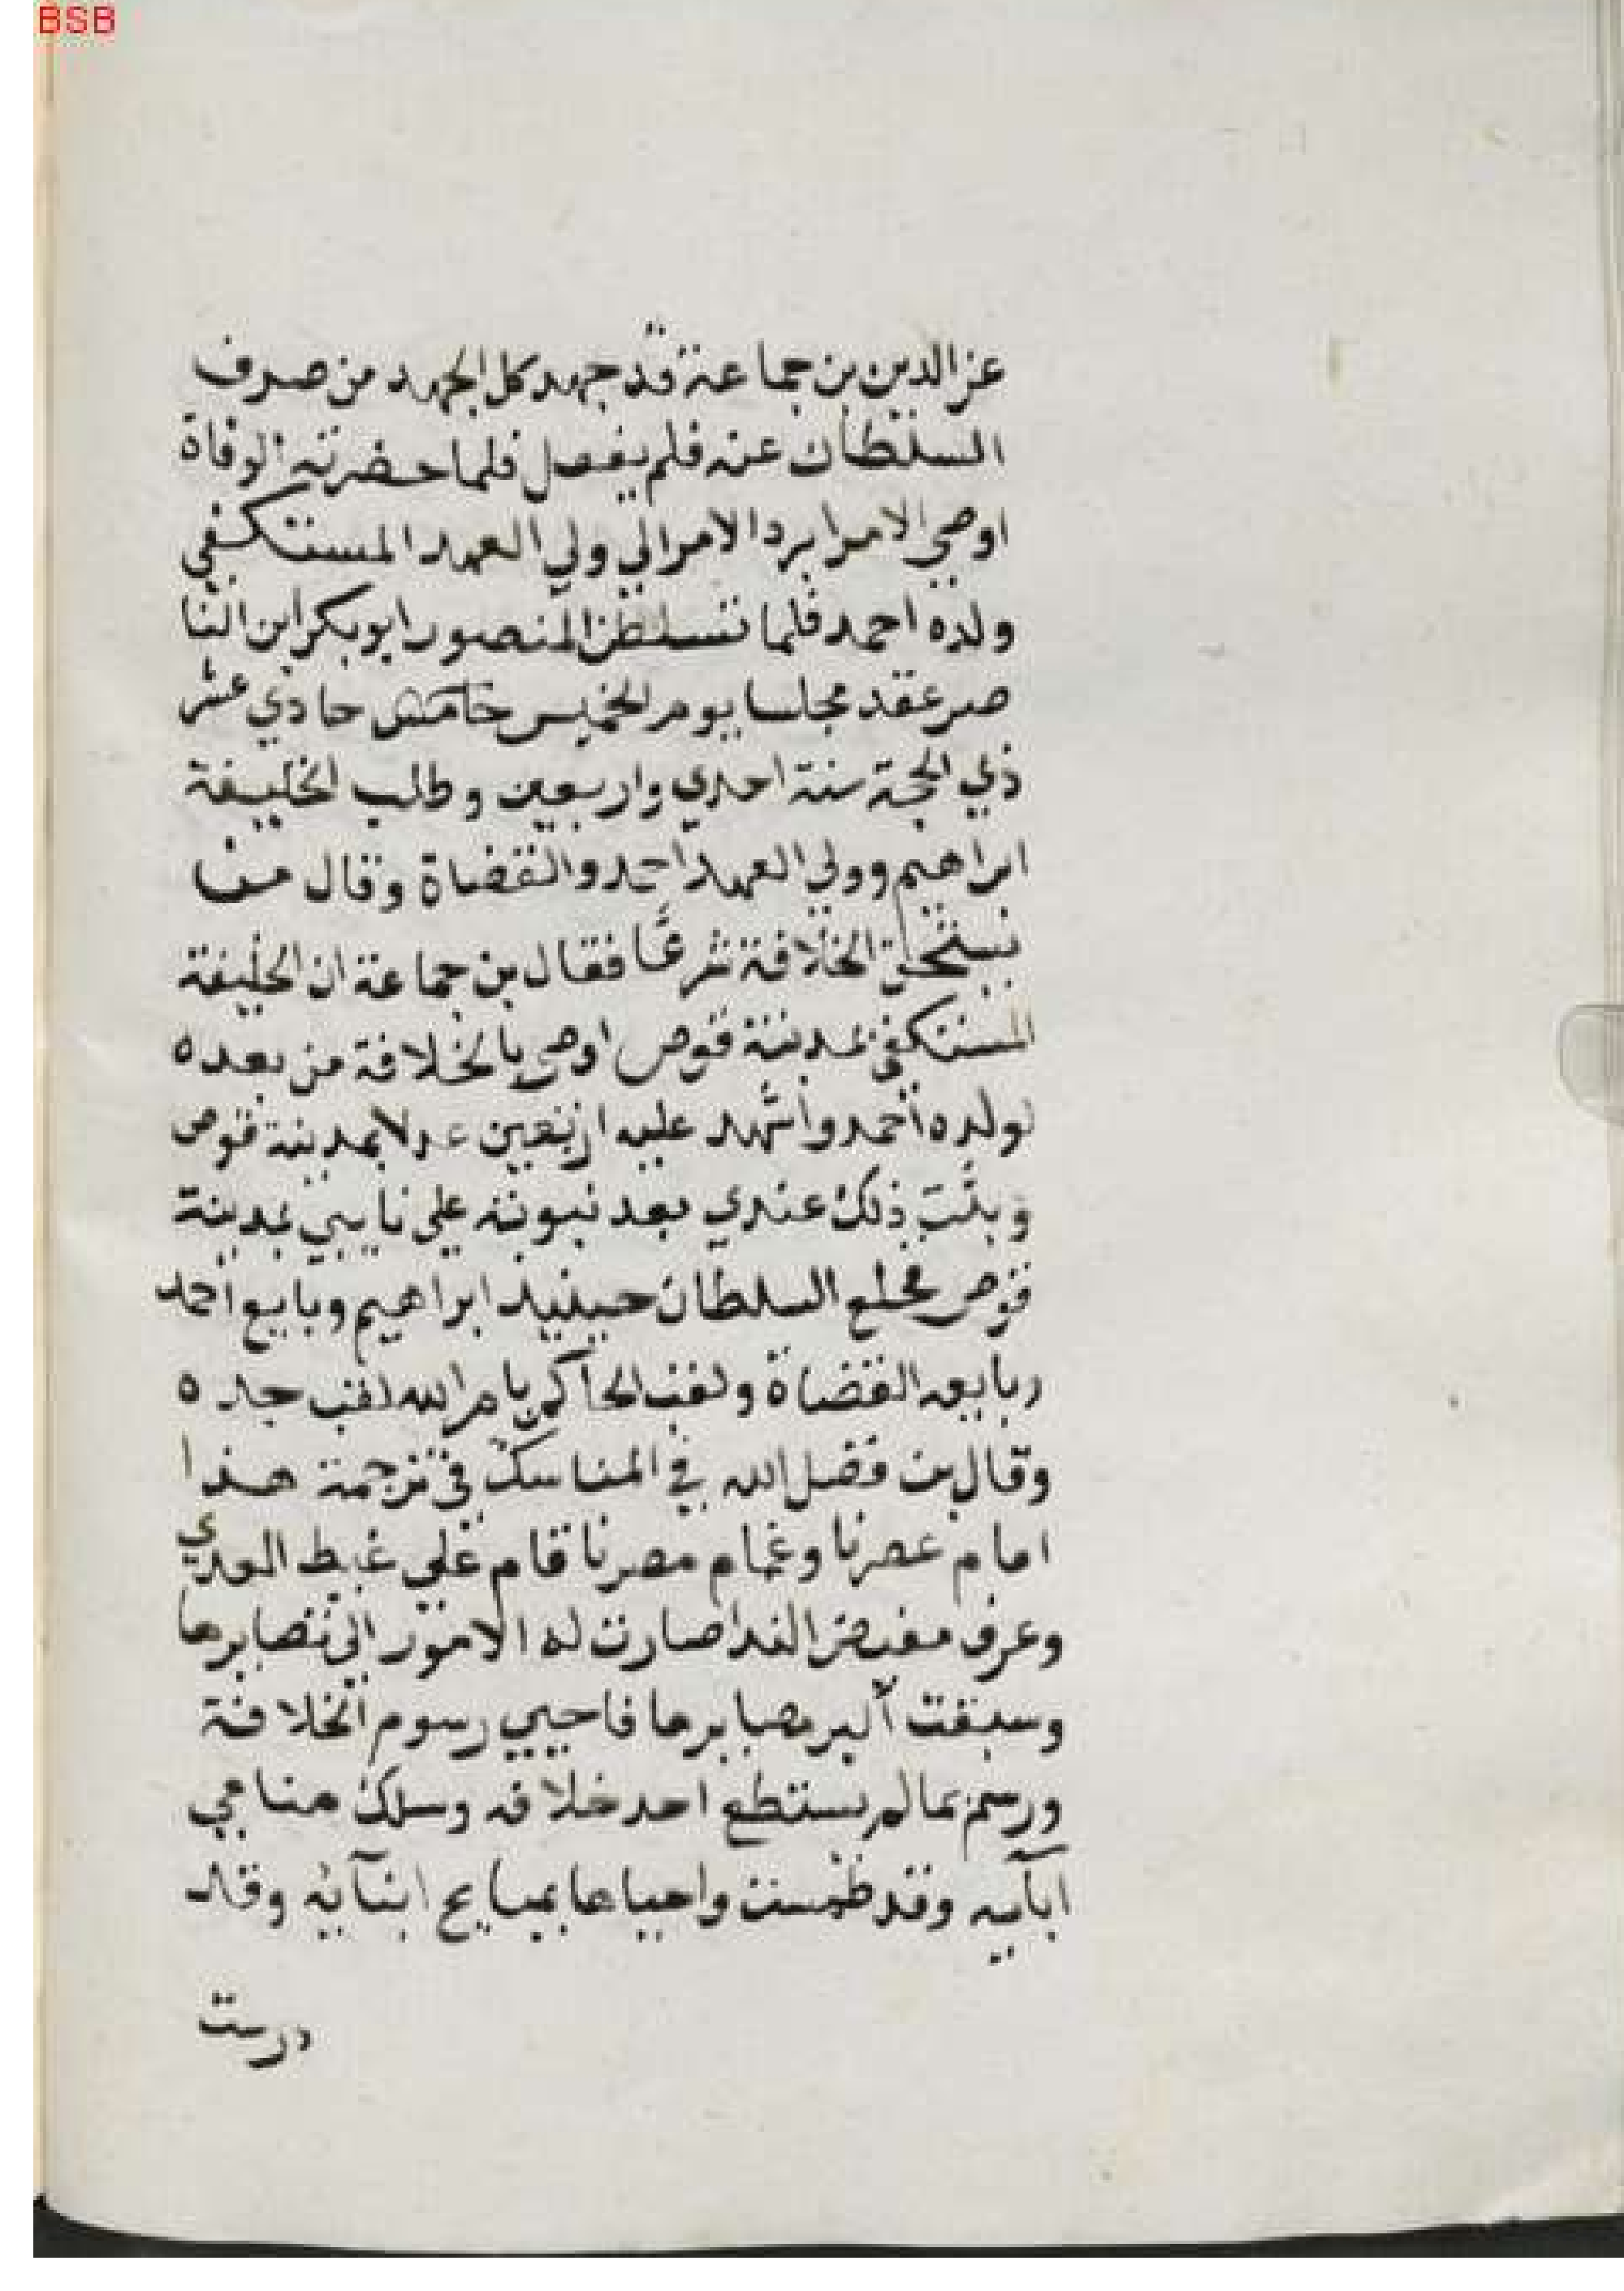 BSB
عز الدين بن جماعة قد جهد كل الجهد من صرف
السلطان عنه فلم يفعل فلما حضرته الوفاة
اوصي الامرا برد الامر الي ولي العهد المستكفي
ولده احمد فلما تسلطن المنصور ابو بكر ابن النا
صر عقد مجلسا يوم الخميس حادي عشر
ذي الحجة سنة احدي واربعين وطلب الخليفة
ابراهيم وولي العهد احمد والقضاة وقال من
يستحق الخلافة شرعًا فقال بن جماعة ان الخليفة
المستكفي بمدينة قوص اوصي بالخلافة من بعده
لولده احمد واشهد عليه اربعين عدلا بمدينة قوص
وثبت ذلك عندي بعد ثبوته علي نايبي بمدينة
قوص فخلع السلطان حينيذ ابراهيم وبايع احمد
وبايعه القضاة ولقب الحاكم بامر الله لقب جده
وقال بن فضل الله في المناسك في ترجمة هذا
امام عصرنا وغمام مصرنا قام علي غيظ العدي
وعرف مفيض الندا صارت له الامور الي تصايرها
وسيقت اليه مصابرها فاحيي رسوم الخلافة
ورسم بما لم يستطع احد خلافه وسلك مناهي
ابآييه وقد طمست واحياها بمبايع ابنآيه وقال
درست